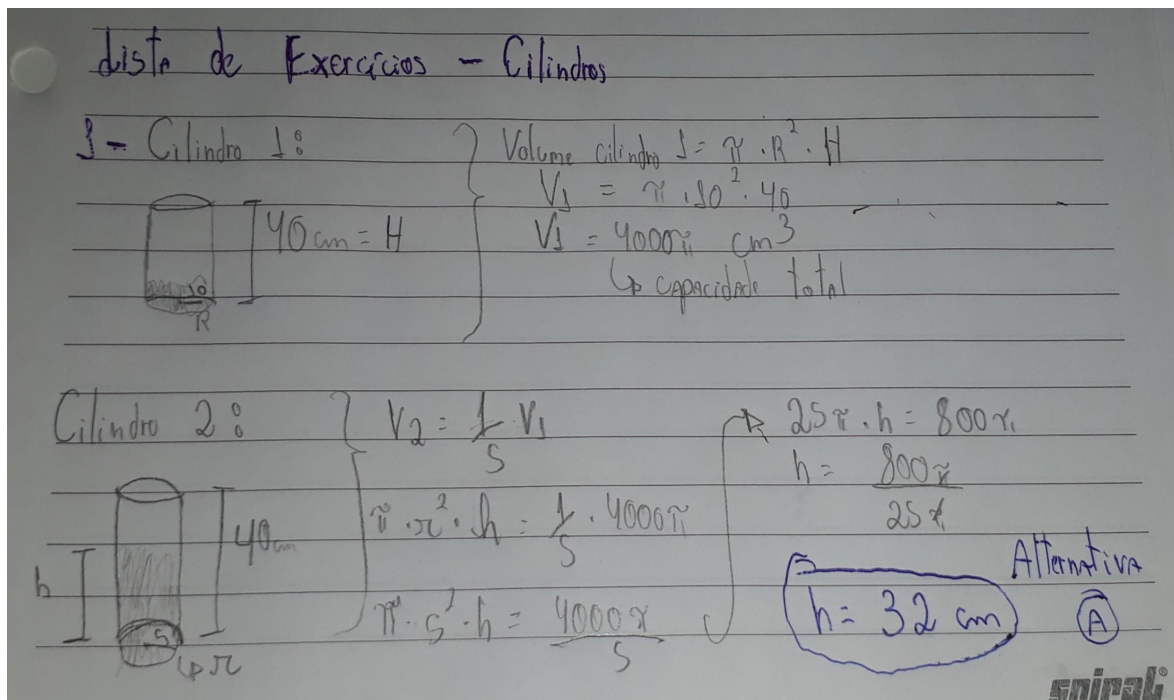 Lista de Exercícios - Cilindros
1- Cilindro 1:
40 cm = H
10
R
Volume cilindro 1 = π . R² . H
V1 = π . 10² . 40
V1 = 4000π cm³
↳ capacidade total
Cilindro 2:
40cm
h
5
↳ r
V2 = 1/5 . V1
π . r² . h = 1/5 . 4000π
π . 5² . h = 4000π/5
25π . h = 800π
h = 800π/25π
h = 32 cm
Alternativa
A
spiral